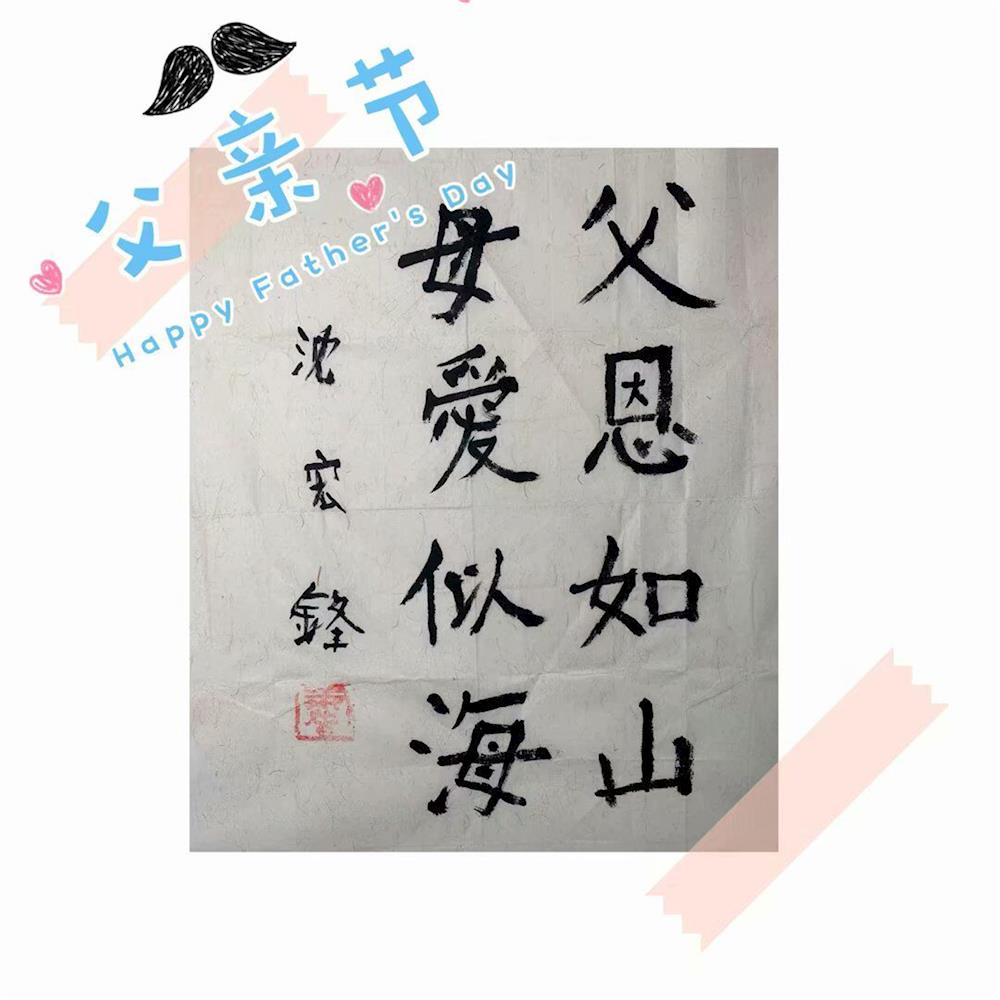 父亲节
Happy Father's Day
父恩如山
母愛似海
沈宏鋒